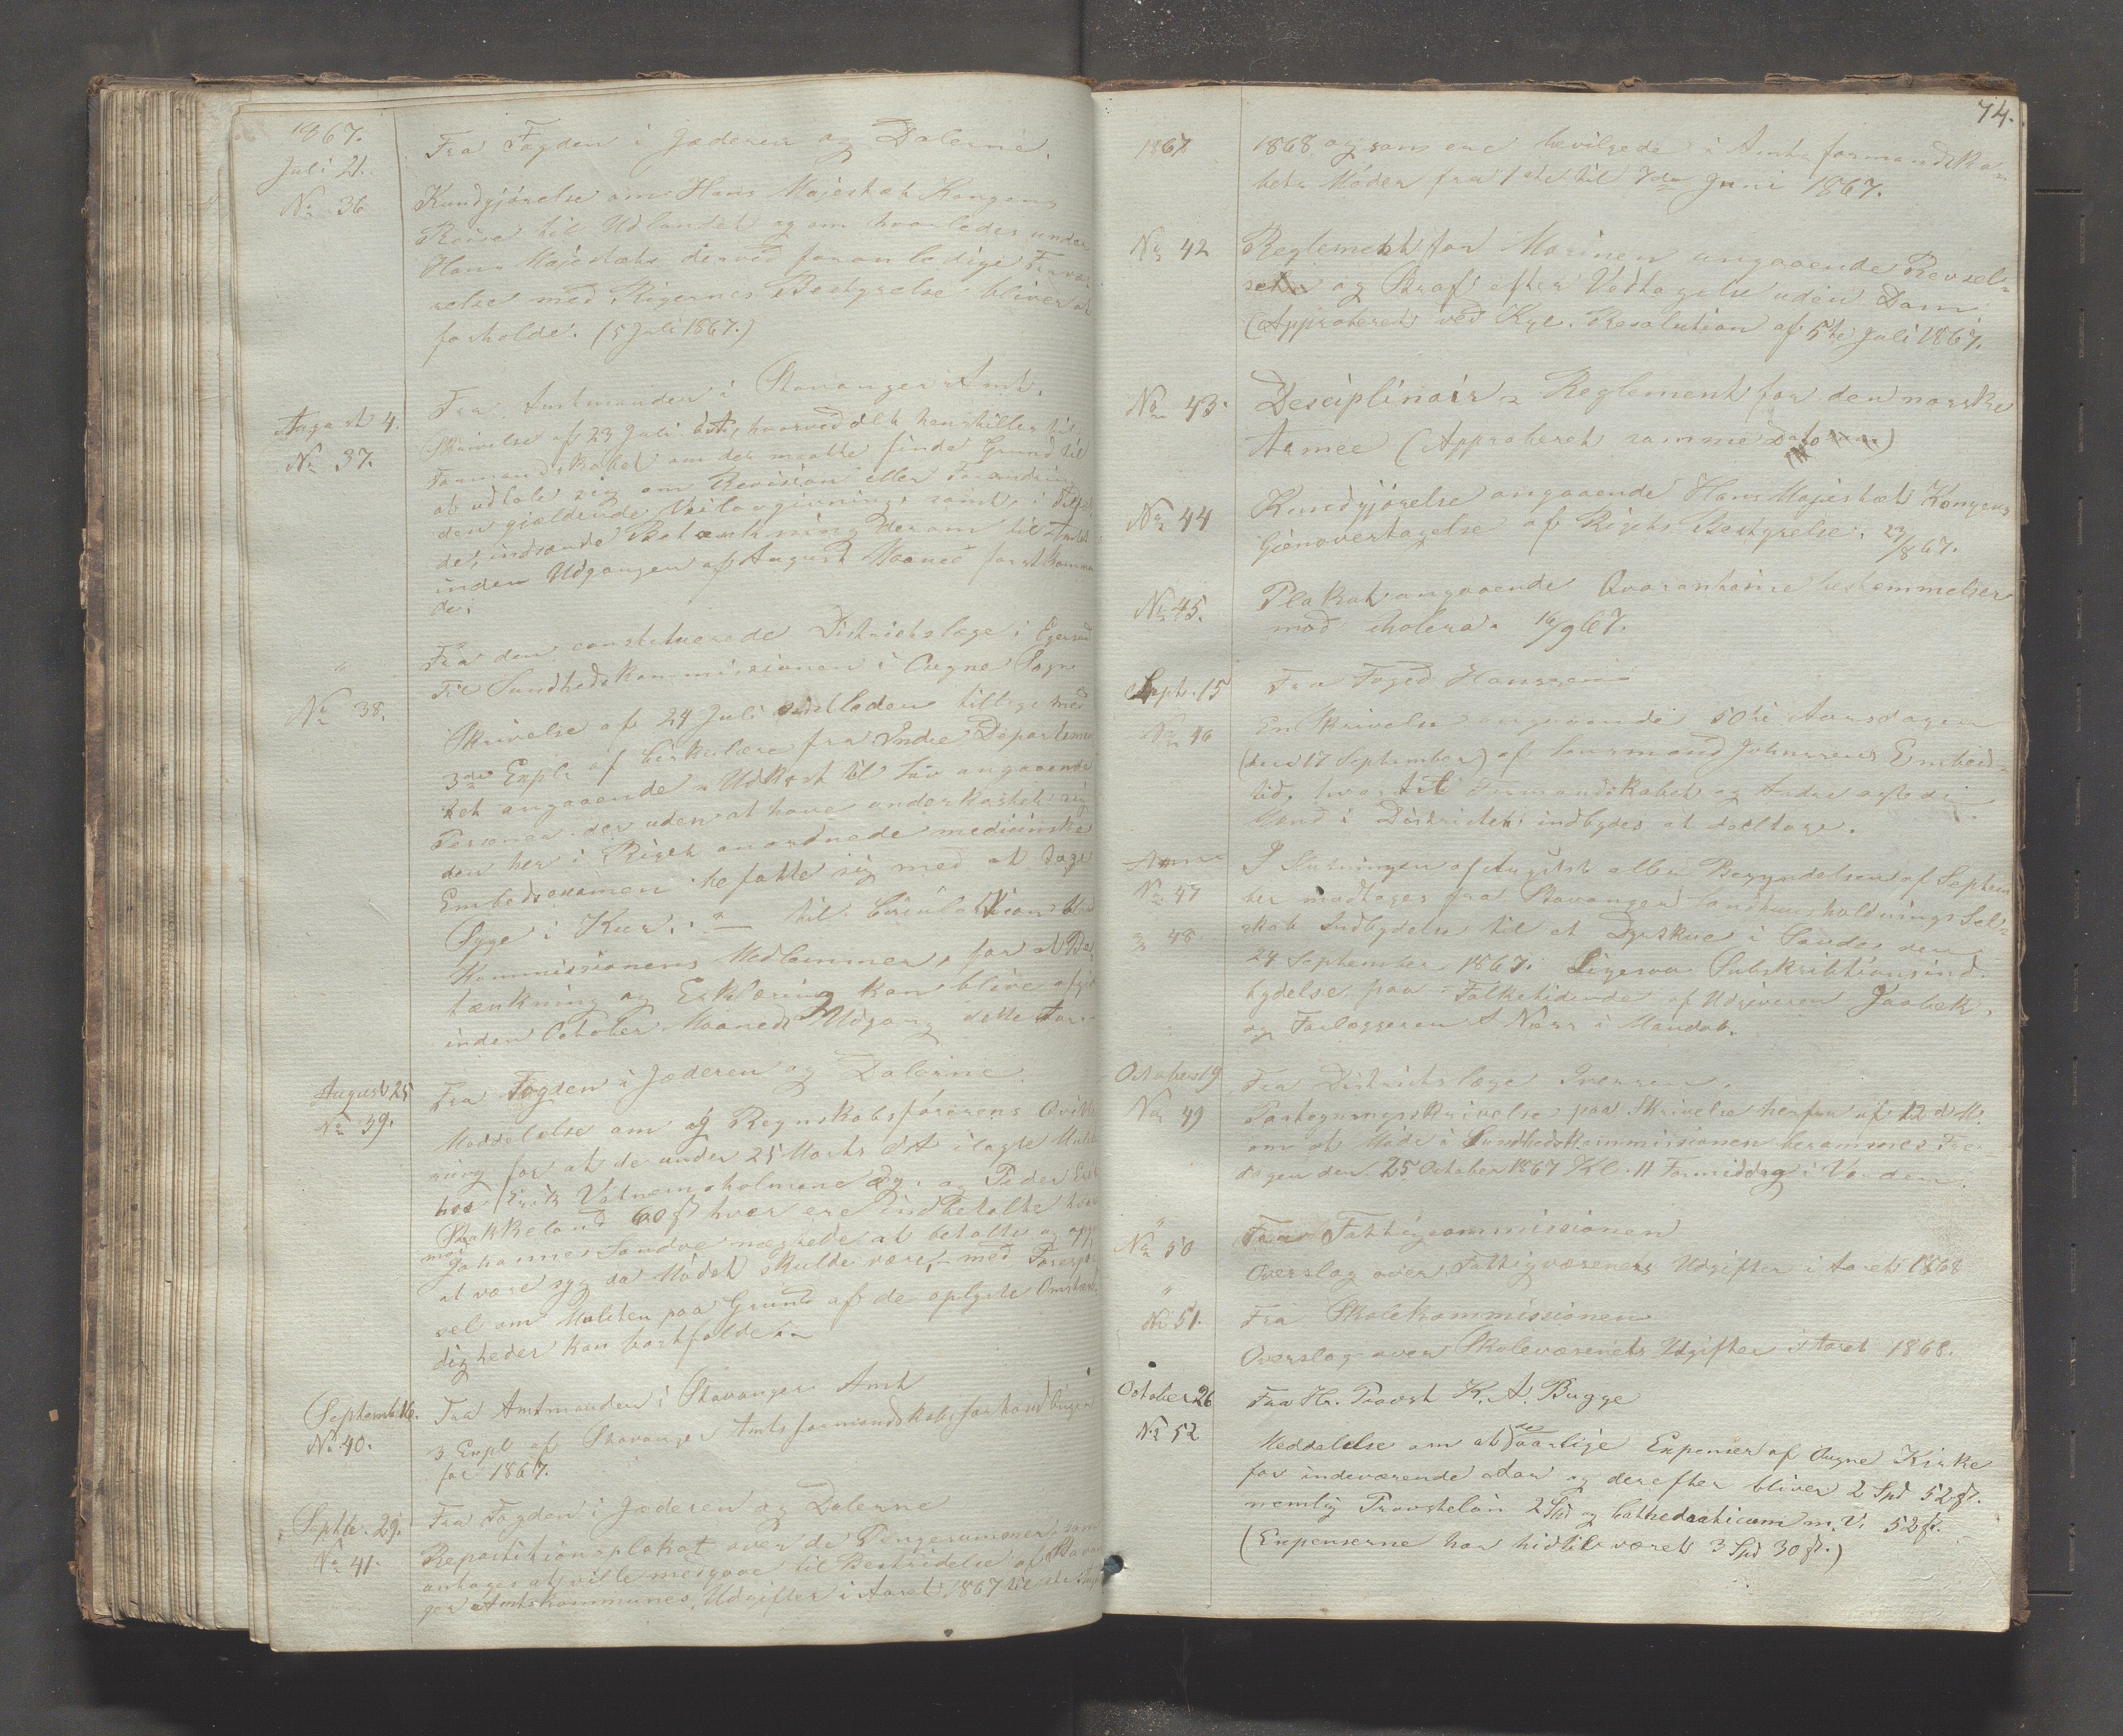 1867.
Juli 21.
No 36
Fra Fogden i Jæderen og Dalerne.
Kundgjørelse om Hans Majestæt Kongens
Reise til Udlandet og om hvorledes under
Hans Majestæts derved foranledige Fravæ-
relse med Rigernes Bestyrelse bliver at
forholde. (5 Juli 1867.)
August 4.
No 37.
Fra Amtmanden i Stavanger Amt.
Skrivelse af 23 Juli d.A., hvorved det henstilles til
Formandskabet om der maatte finde Grund til
at udtale sig om Revision eller Forandring
den gjældende Veilovgivning, samt, i
de, indsende Betænkning derom til Amtet
inden Udgangen af August Maaned førstkommen
de.
"
No 38.
Fra den constituerede Distriktslæge i Egersund
Til Sundhedskommissionen i Ougne Sogn
Skrivelse af 24 Juli sidstleden tilligemed
3de Expl. af Cirkulære fra Indre Departemen
tet angaaende "Udkast til Lov angaaende
Personer der uden at have underkastet sig
den her i Riget anordnede medicinske
Embedsexamen befatte sig med at tage
Syge i Kur." — til Circulation blandt
Kommissionens Medlemmer, for at Be-
tænkning og Erklæring kan blive afgivet
inden October Maaneds Udgang dette Aar.
August 25
No 39.
Fra Fogden i Jæderen og Dalerne
Meddelelse om og Regnskabsførerens Qvitte
ring for at de under 25 Marts d.A. ilagte Mulkter
hos Erik Vatnemsholmene og Peder
Stokkeland 60 ß hver ere indbetalte hvor
mod Johannes Sandve nægtede at betale og opgav
at være syg da Mødet skulde være, – med Forespør
sel om Mulkten paa Grund af de oplyste Omstæn-
digheder kan bortfalde. –
Septemb 16.
No 40.
Fra Amtmanden i Stavanger Amt
3 Expl af Stavanger Amtsformandskabsforhandlinger
for 1867.
Septb. 29.
No 41.
Fra Fogden i Jæderen og Dalerne
Repartitionsplakat over de Pengesummer, som
antages at ville medgaae til Bestridelse af Stavan
ger Amtskommunes Udgifter i Aaret 1867 til
74.
1867
1868 og som ere bevilgede i Amtsformandska-
bets Møder fra 1ste til 7de Juni 1867.
No 42
Reglement for Marinen angaaende Revsel-
se og Straf efter Vedtagelse uden Dom.
(Approberet ved Kgl. Resolution af 5te Juli 1867.
No 43.
Desciplinair-Reglement for den norske
Armee (Approberet samme Dato)
No 44
Kundgjørelse angaaende Hans Majestæt Kongens
Gjenovertagelse af Rigets Bestyrelse. 23/8 67.
No 45.
Plakat angaaende Qvarantaine bestemmelser
mod cholera. 16/9 67.
Septr. 15
No 46
Fra Foged Hanssen
En Skrivelse angaaende 50te Aarsdagen
(den 17 September) af Lensmand Johnsens Embeds-
tid, hvortil Formandskabet og Andre agtede
Mænd i Distriktet indbydes at deeltage.
No 47
" 48.
I Slutningen af August eller Begyndelsen af Septem
ber modtages fra Stavanger Landhuusholdnings Sel-
skab Indbydelse til et Dyrskue i Sandes den
24 September 1867. Ligesaa Subskriktionsind-
bydelse paa "Folketidende" af Udgiveren Jaabek,
og Forlæggeren A Næss i Mandal.
October 19
No 49
Fra Distriktslæge Iversen.
Paategningsskrivelse paa Skrivelse herfra af 12 d.M.
om at Møde i Sundhedskommissionen berammes Fre-
dagen den 25 October 1867 Kl. 11 Formiddag i Varden.
"
No 50
Fra Fattigcommissionen
Overslag over Fattigvæsenets Udgifter i Aaret 1868
"
No 51.
Fra Skolekommissionen
Overslag over Skolevæsenets Udgifter i Aaret 1868.
October 26
No 52
Fra Hr. Provst K. A. Bugge
Meddelelse om at de aarlige Expenser af Ougne Kirke
for indeværende Aar og derefter bliver 2 Spd 52 ß.
nemlig Provsteløn 2 Spd og Cathedraticum m. V. 52 ß.
(Expenserne har hidtil været 3 Spd 30 ß.)